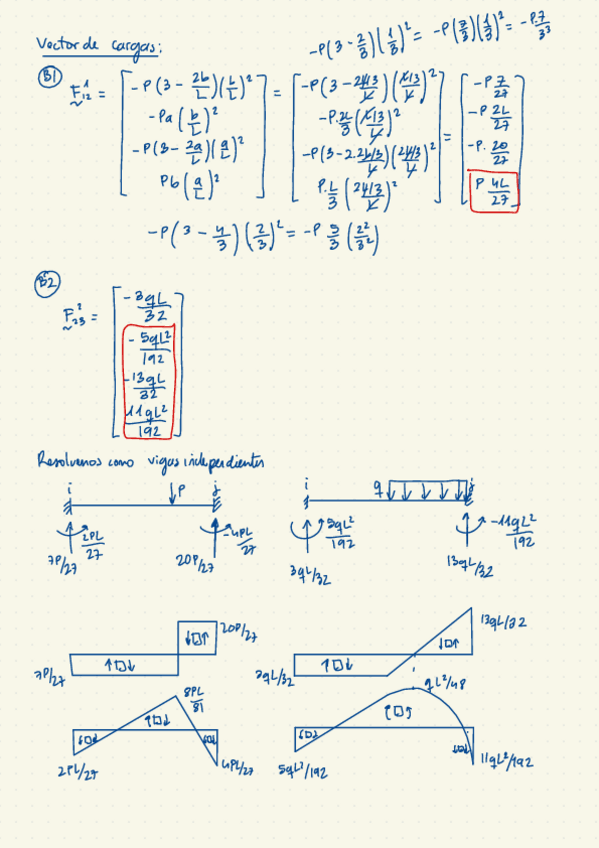 Vector de cargas:
-P(3 - 2/3)(1/3)² = -P(7/3)(1/3)² = -P.7/3³
B1
F¹₁₂ = [-P(3 - 2b/L)(b/L)² ; -Pa(b/L)² ; -P(3 - 2a/L)(a/L)² ; Pb(a/L)²] = [-P(3 - 2L/3/L)(L/3/L)² ; -P.2L/3(L/3/L)² ; -P(3 - 2.2L/3/L)(2L/3/L)² ; P.L/3(2L/3/L)²] = [-P 7/27 ; -P 2L/27 ; -P. 20/27 ; P 4L/27]
-P(3 - 4/3)(2/3)² = -P 5/3 (2²/3²)
B2
F²₂₃ = [-3qL/32 ; -5qL²/192 ; -13qL/32 ; 11qL²/192]
Resolvemos como vigas independientes
i P j
2PL/27 -4PL/27
7P/27 20P/27
i q j
5qL²/192 -11qL²/192
3qL/32 13qL/32
20P/27
7P/27
13qL/32
3qL/32
8PL/81
2PL/27 4PL/27
qL²/48
5qL²/192 11qL²/192